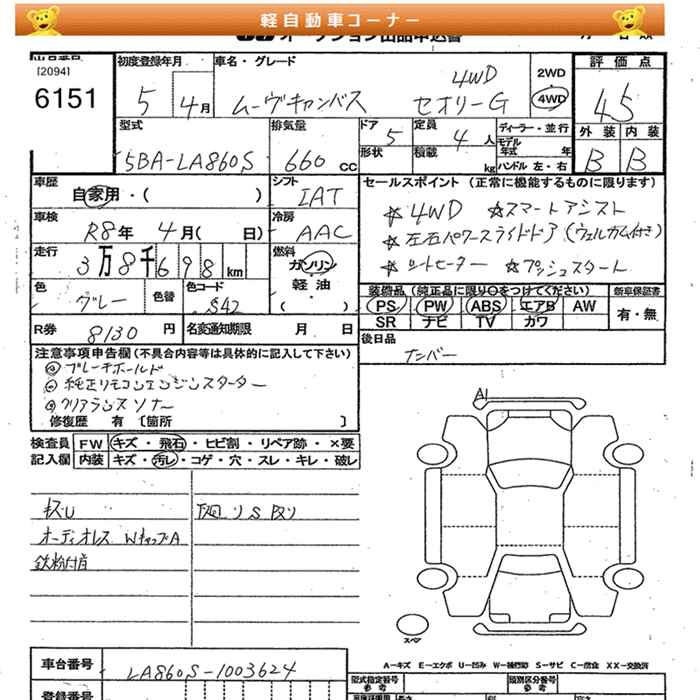 軽自動車コーナー
[2094]
6151
初度登録年月
5 4月
車名・グレード
ムーヴキャンバス
4WD
セオリーG
2WD
4WD
評価点
4.5
外装 内装
B B
型式
5BA-LA860S
排気量
660 cc
ドア
5
定員
4 人
形状
積載
kg
ディーラー・並行
モデル
年式 年
ハンドル 左・右
車歴
自家用・( )
シフト
IAT
車検
R8年 4月( 日)
冷房
AAC
走行
3万8千698km
燃料
ガソリン
軽油
( )
色
グレー
色替
色コード
S42
R券
8130 円
名変通知期限 月 日
セールスポイント (正常に機能するものに限ります)
☆4WD ☆スマートアシスト
☆左右パワースライドドア(ウェルカム付き)
☆シートヒーター ☆プッシュスタート
装備品(純正品に限り○をつけてください)
PS PW ABS エアB AW
SR ナビ TV カワ
新車保証書
有・無
後日品
ナンバー
注意事項申告欄(不具合内容等は具体的に記入して下さい)
◎ブレーキホールド
◎純正リモコンエンジンスターター
◎クリアランスソナー
修復歴 有 〔箇所 〕
検査員
記入欄
FW キズ・飛石・ヒビ割・リペア跡・×要
内装 キズ・汚レ・コゲ・穴・スレ・キレ・破レ
キズU
オーディオレス WキャップA
鉄粉付着
下回りSタリ
A1
スペア
A-キズ E-エクボ U-凹み W-補修跡 S-サビ C-腐食 XX-交換済
車台番号
LA860S-1003624
登録番号
型式指定番号
参考
類別区分番号
参考